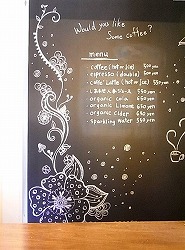 Would you like
Some coffee?
menu
・coffee (hot or ice) 500 yen
・espresso (double) 600 yen
・caffe Latte (hot or ice) 550 yen
550 yen
・organic cola 550 yen
・organic Limone 550 yen
・organic Cider 550 yen
・sparkling water 550 yen